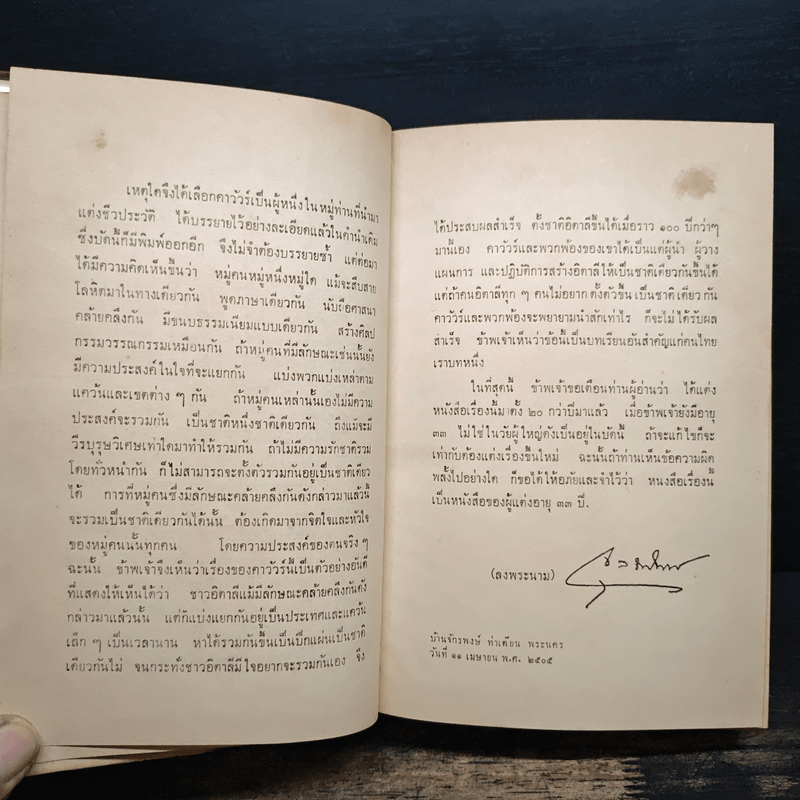 เหตุใดจึงได้เลือกคาวัวร์เป็นผู้หนึ่งในหมู่ท่านที่นำมา
แต่งชีวประวัติ ได้บรรยายไว้อย่างละเอียดแล้วในคำนำเดิม
ซึ่งบัดนี้ก็มีพิมพ์ออกอีก จึงไม่จำต้องบรรยายซ้ำ แต่ต่อมา
ได้มีความคิดเห็นขึ้นว่า หมู่คนหมู่หนึ่งหมู่ใด แม้จะสืบสาย
โลหิตมาในทางเดียวกัน พูดภาษาเดียวกัน นับถือศาสนา
คล้ายคลึงกัน มีขนบธรรมเนียมแบบเดียวกัน สร้างศิลป
กรรมวรรณกรรมเหมือนกัน ถ้าหมู่คนที่มีลักษณะเช่นนั้นยัง
มีความประสงค์ในใจที่จะแยกกัน แบ่งพวกแบ่งเหล่าตาม
แคว้นและเขตต่าง ๆ กัน ถ้าหมู่คนเหล่านั้นเองไม่มีความ
ประสงค์จะรวมกัน เป็นชาติหนึ่งชาติเดียวกัน ถึงแม้จะมี
วีรบุรุษวิเศษเท่าใดมาทำให้รวมกัน ถ้าไม่มีความรักชาติรวม
โดยทั่วหน้ากัน ก็ไม่สามารถจะตั้งตัวรวมกันอยู่เป็นชาติเดียว
ได้ การที่หมู่คนซึ่งมีลักษณะคล้ายคลึงกันดังกล่าวมาแล้วนี้
จะรวมเป็นชาติเดียวกันได้นั้น ต้องเกิดมาจากจิตใจและหัวใจ
ของหมู่คนนั้นทุกคน โดยความประสงค์ของตนจริง ๆ
ฉะนั้น ข้าพเจ้าจึงเห็นว่าเรื่องของคาวัวร์นี้เป็นตัวอย่างอันดี
ที่แสดงให้เห็นได้ว่า ชาวอิตาลีแม้มีลักษณะคล้ายคลึงกันดัง
กล่าวมาแล้วนั้น แต่ก็แบ่งแยกกันอยู่เป็นประเทศและแคว้น
เล็ก ๆ เป็นเวลานาน หาได้รวมกันขึ้นเป็นปึกแผ่นเป็นชาติ
เดียวกันไม่ จนกระทั่งชาวอิตาลีมีใจอยากจะรวมกันเอง จึง
ได้ประสบผลสำเร็จ ตั้งชาติอิตาลีขึ้นได้เมื่อราว ๑๐๐ ปีกว่าๆ
มานี้เอง คาวัวร์และพวกพ้องของเขาได้เป็นแต่ผู้นำ ผู้วาง
แผนการ และปฏิบัติการสร้างอิตาลีให้เป็นชาติเดียวกันขึ้นได้
แต่ถ้าคนอิตาลีทุก ๆ คนไม่อยากตั้งตัวขึ้นเป็นชาติเดียวกัน
คาวัวร์และพวกพ้องจะพยายามนำสักเท่าไร ก็จะไม่ได้รับผล
สำเร็จ ข้าพเจ้าเห็นว่าข้อนี้เป็นบทเรียนอันสำคัญแก่คนไทย
เราบทหนึ่ง
ในที่สุดนี้ ข้าพเจ้าขอเตือนท่านผู้อ่านว่า ได้แต่ง
หนังสือเรื่องนี้มาตั้ง ๒๐ กว่าปีมาแล้ว เมื่อข้าพเจ้ายังมีอายุ
๓๓ ไม่ใช่ในวัยผู้ใหญ่ดังเป็นอยู่ในบัดนี้ ถ้าจะแก้ไขก็จะ
เท่ากับต้องแต่งเรื่องขึ้นใหม่ ฉะนั้นถ้าท่านเห็นข้อความผิด
พลั้งไปอย่างใด ก็ขอได้ให้อภัยและจำไว้ว่า หนังสือเรื่องนี้
เป็นหนังสือของผู้แต่งอายุ ๓๓ ปี.
(ลงพระนาม)
บ้านจักรพงษ์ ท่าเตียน พระนคร
วันที่ ๑๑ เมษายน พ.ศ. ๒๕๐๕